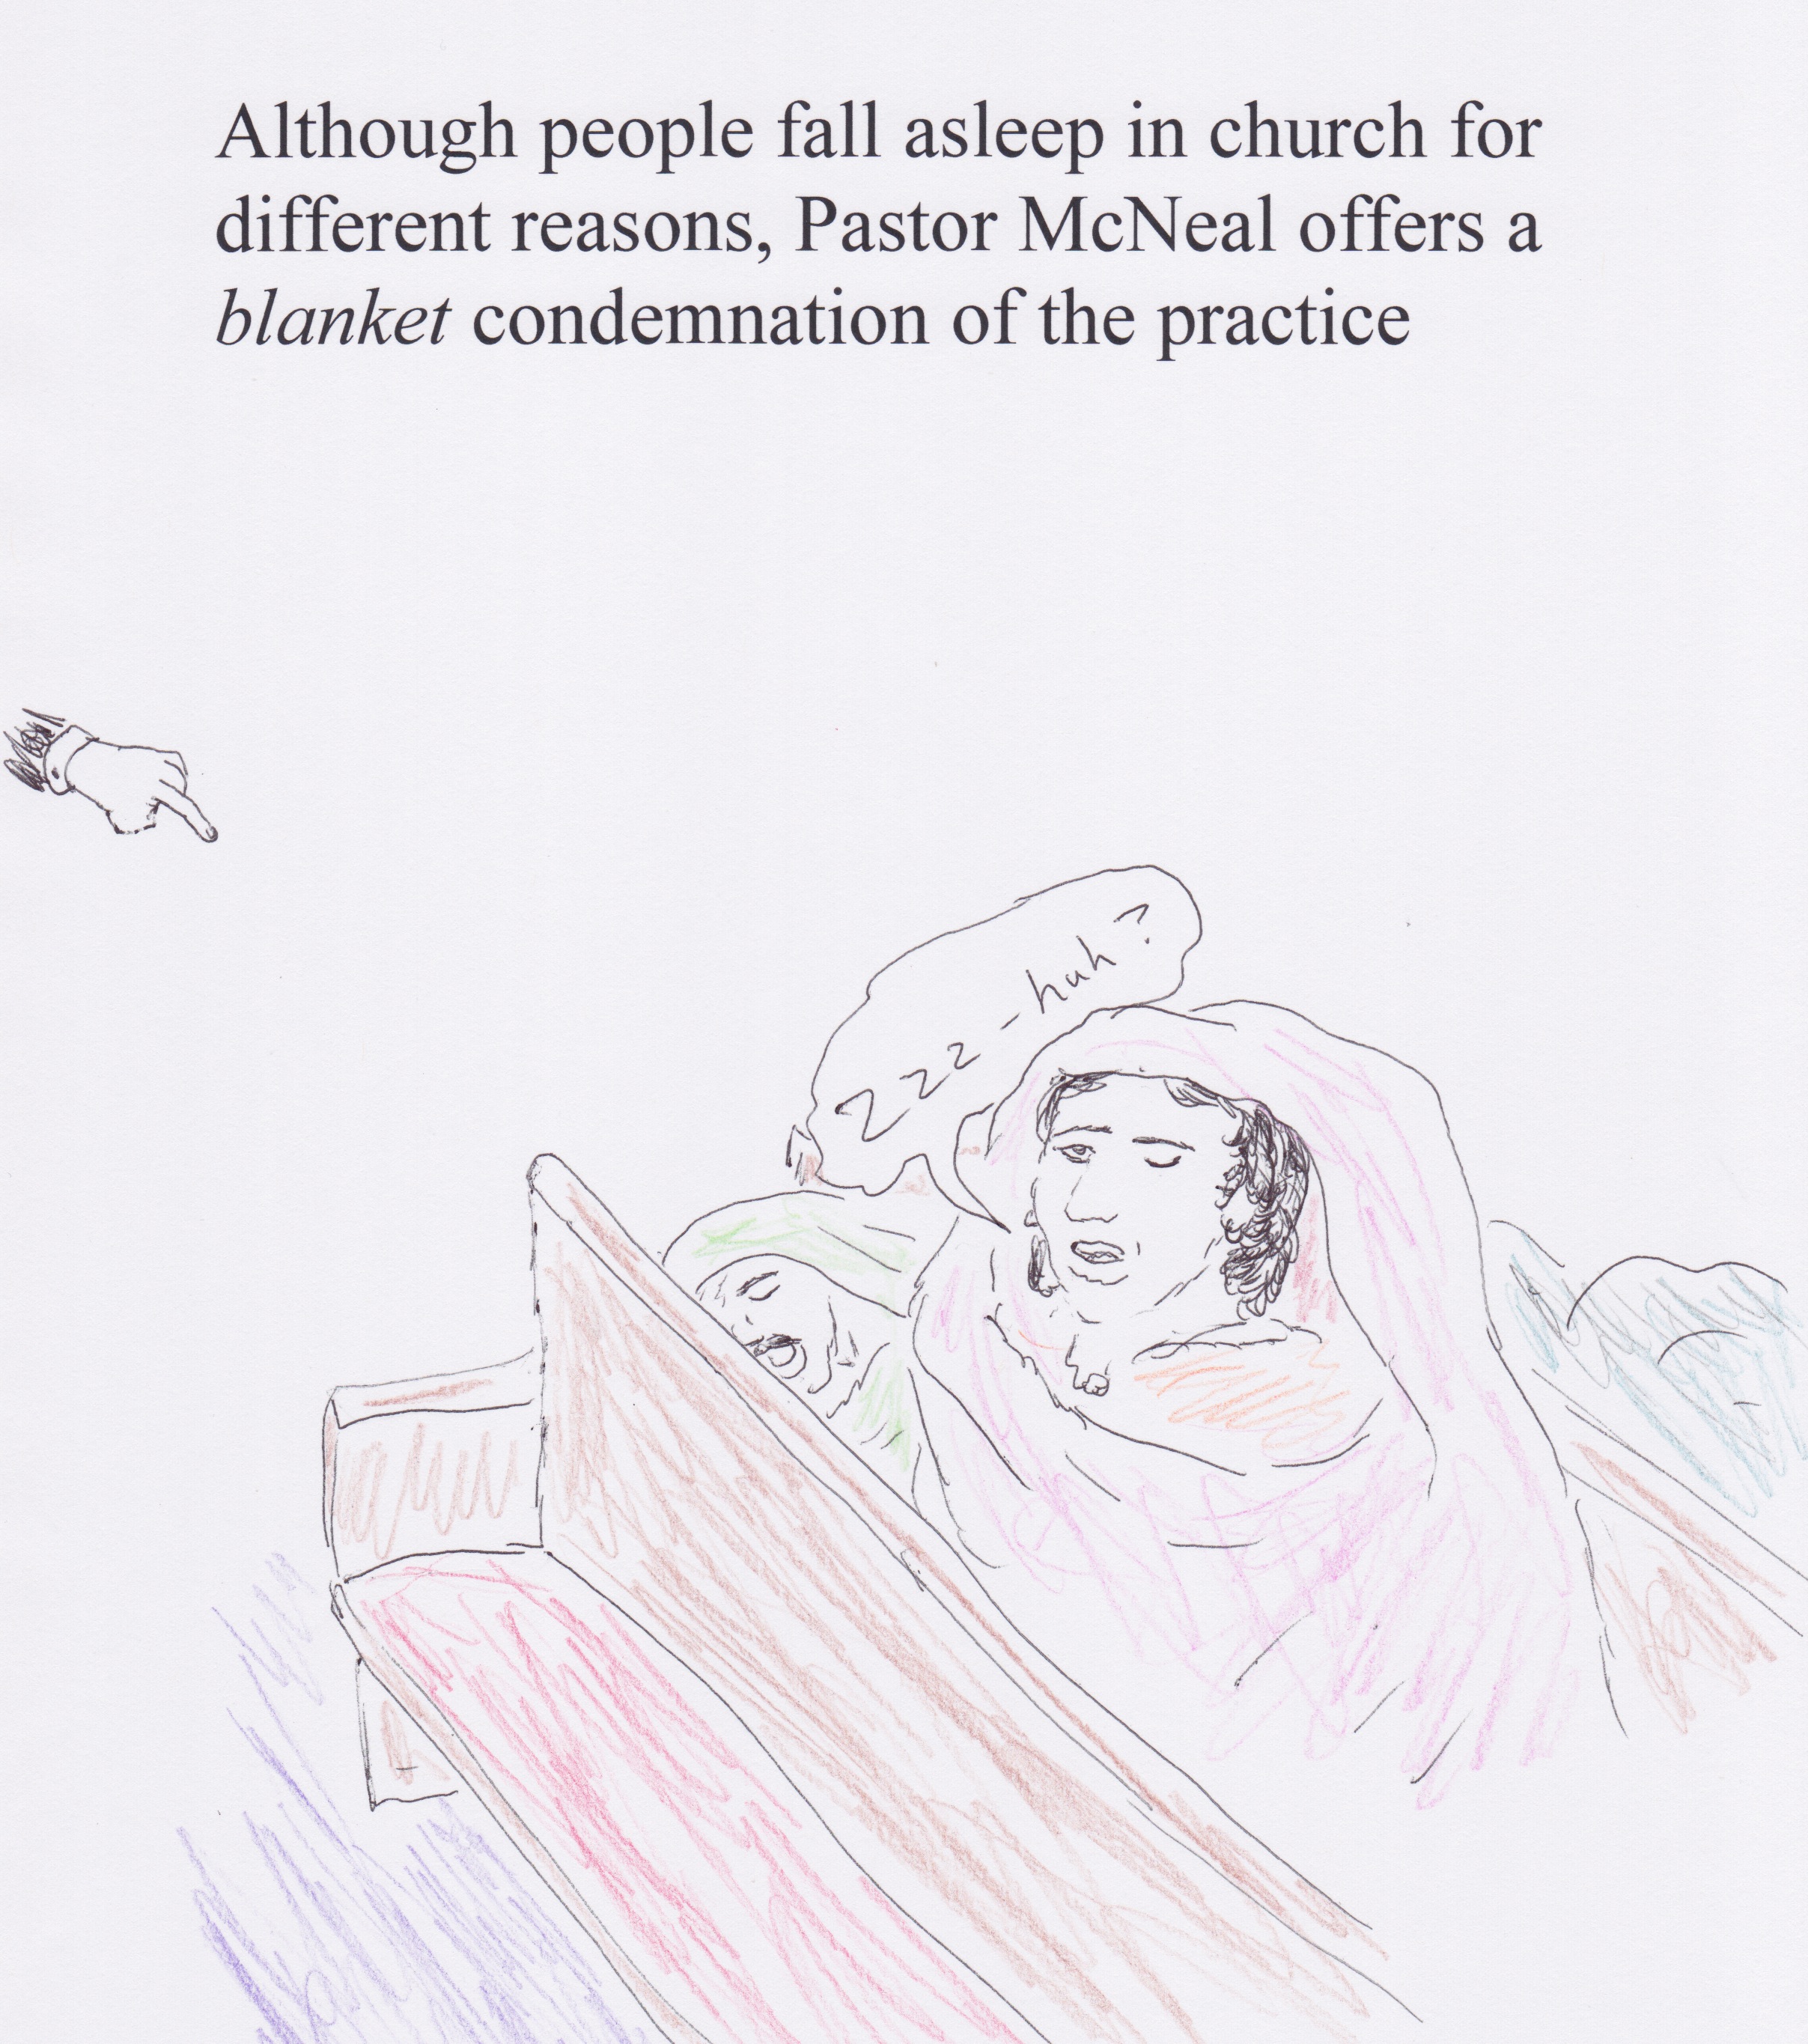 Although people fall asleep in church for
different reasons, Pastor McNeal offers a
blanket condemnation of the practice
Zzz-huh?